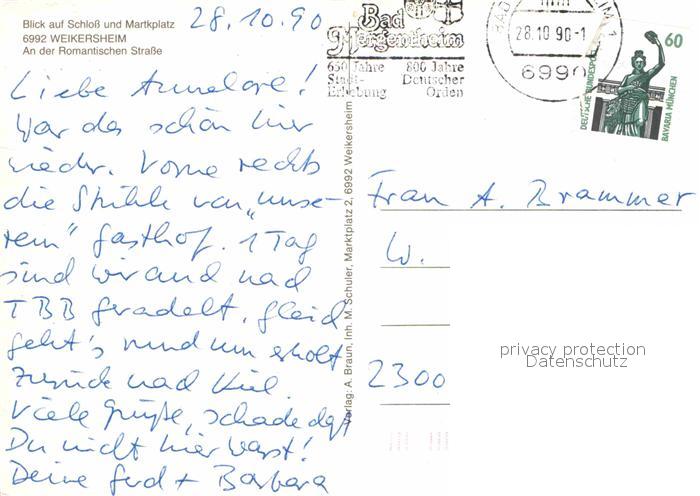 Blick auf Schloß und Martkplatz
6992 WEIKERSHEIM
An der Romantischen Straße
28.10.90
Liebe Annelore!
War das schön hier
wieder. Vorne rechts
die Stühle von „unse-
rem“ Gasthof. 1 Tag
sind wir auch nach
TBB geradelt, gleich
geht's rundum erholt
zurück nach Kiel.
Viele Grüße, schade daß
Du nicht hier warst!
Deine Gerd + Barbara
Verlag: A. Braun, Inh. M. Schuler, Marktplatz 2, 6992 Weikersheim
Bad
Mergentheim
650 Jahre
Stadt-
Erhebung
800 Jahre
Deutscher
Orden
BAD
28.10.90-1
6990
60
DEUTSCHE BUNDESPOST
BAVARIA MÜNCHEN
Frau A. Brammer
W.
2300
privacy protection
Datenschutz